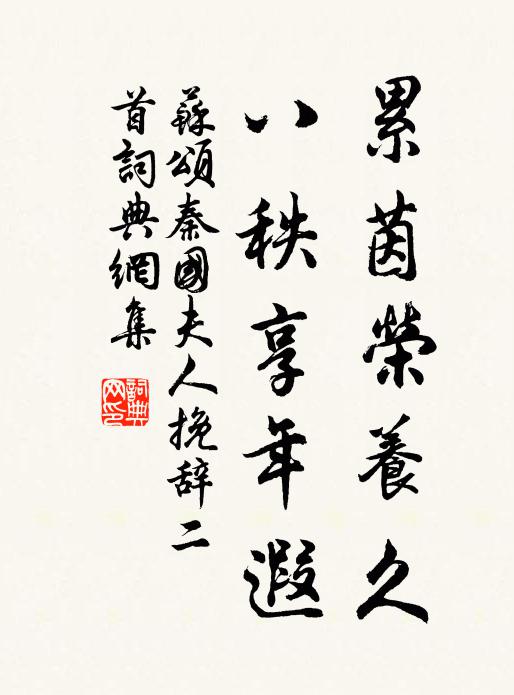 累茵榮養久
八秩享年遐
蘇頌秦國夫人挽辞二
首詞典網集
詞典网印